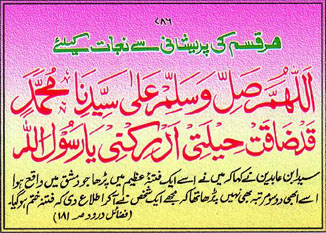 ۷۸۶
ہر قسم کی پریشانی سے نجات کیلئے
اَللّٰهُمَّ صَلِّ وَسَلِّمْ عَلٰی سَیِّدِنَا مُحَمَّدٍ
قَدْ ضَاقَتْ حِیْلَتِیْ اَدْرِکْنِیْ یَا رَسُوْلَ اللّٰهِ
سید ابن عابدین نے کہا کہ میں نے اسے ایک فتنۂ عظیم میں پڑھا جو دمشق میں واقع ہوا
اسے ابھی دو سو مرتبہ بھی نہیں پڑھا تھا کہ مجھے ایک شخص نے آکر اطلاع دی کہ فتنہ ختم ہو گیا۔
(فضائل درود صـ ۱۸۱)